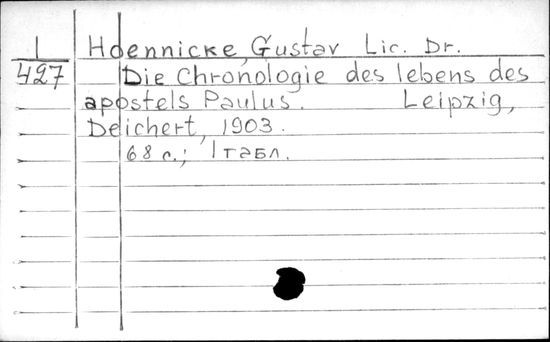 I Hoennicke, Gustav Lic. Dr.
427 Die Chronologie des lebens des
apostels Paulus. Leipzig,
Deichert, 1903.
68 с.; 1 табл.